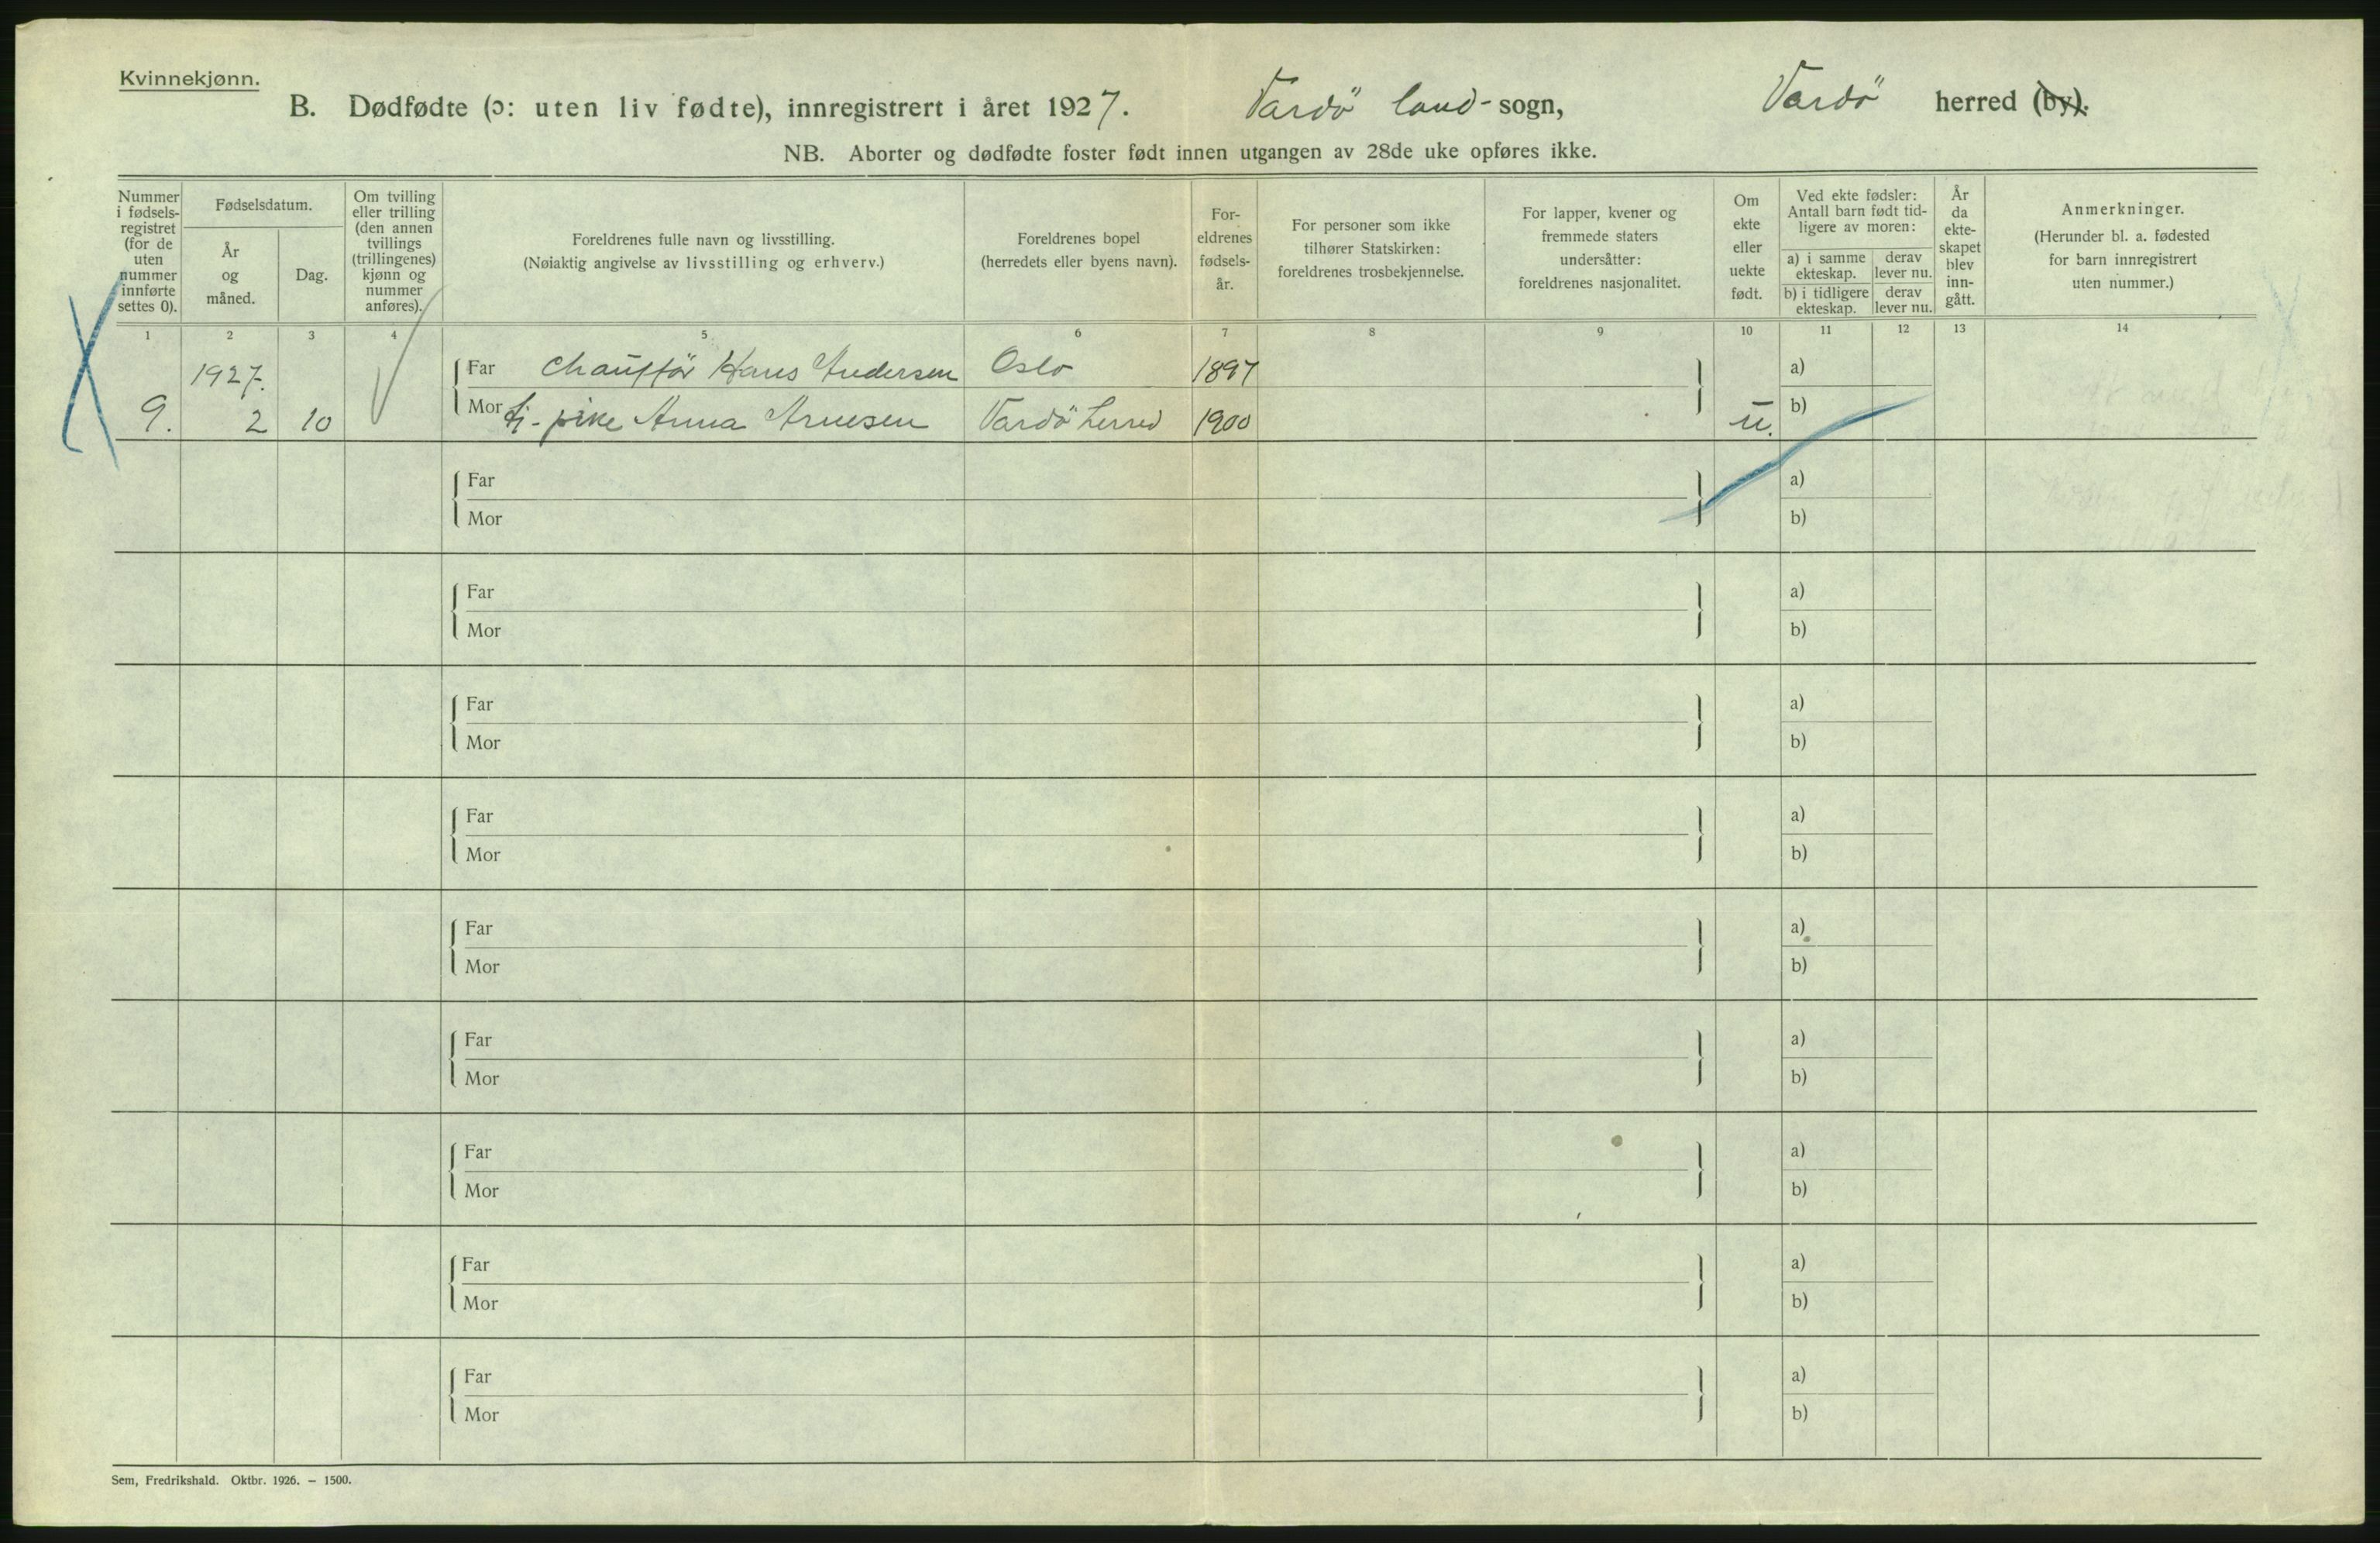 Kvinnekjønn.
B. Dødfødte (ɔ: uten liv fødte), innregistrert i året 1927. Vardö land-sogn, Vardö herred (by).
NB. Aborter og dødfødte foster født innen utgangen av 28de uke opføres ikke.
Nummer i fødsels-registret (for de uten nummer innførte settes 0).
Fødselsdatum.
År og måned.
Dag.
Om tvilling eller trilling (den annen tvillings (trillingenes) kjønn og nummer anføres).
Foreldrenes fulle navn og livsstilling.
(Nøiaktig angivelse av livsstilling og erhverv.)
Foreldrenes bopel
(herredets eller byens navn).
For-eldrenes fødsels-år.
For personer som ikke tilhører Statskirken: foreldrenes trosbekjennelse.
For lapper, kvener og fremmede staters undersåtter: foreldrenes nasjonalitet.
Om ekte eller uekte født.
Ved ekte fødsler: Antall barn født tid-ligere av moren:
a) i samme ekteskap.
derav lever nu.
b) i tidligere ekteskap.
derav lever nu.
År da ekte-skapet blev inn-gått.
Anmerkninger.
(Herunder bl. a. fødested for barn innregistrert uten nummer.)
1 2 3 4 5 6 7 8 9 10 11 12 13 14
1927. Far Chaufför Hans Andersen Oslo 1897 a)
9. 2 10 Mor tj-pike Anna Arnesen Vardö herred 1900 u. b)
Far a)
Mor b)
Far a)
Mor b)
Far a)
Mor b)
Far a)
Mor b)
Far a)
Mor b)
Far a)
Mor b)
Far a)
Mor b)
Far a)
Mor b)
Far a)
Mor b)
Sem, Fredrikshald. Oktbr. 1926. – 1500.